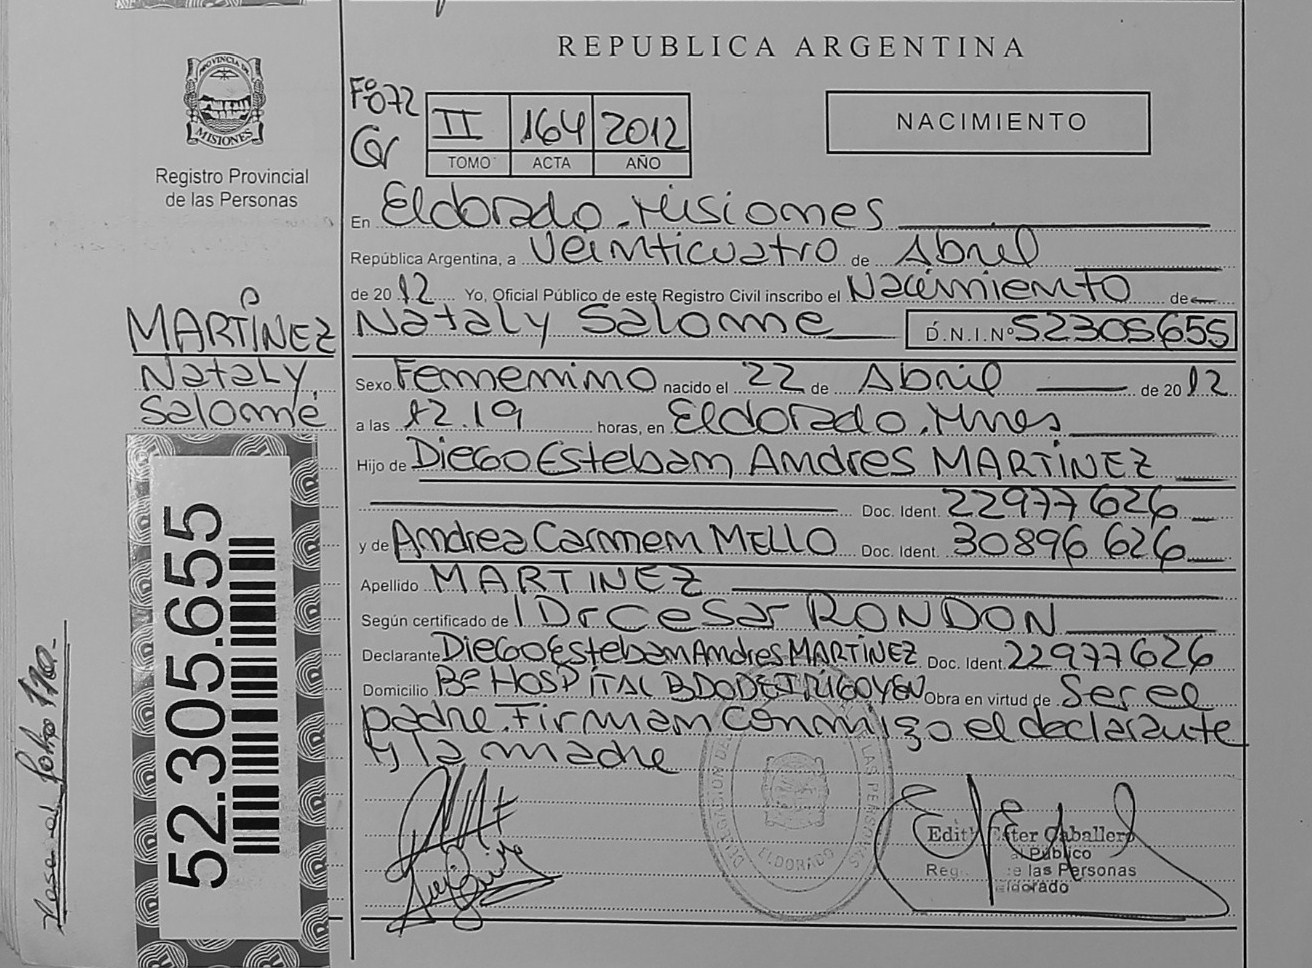 REPUBLICA ARGENTINA
PROVINCIA DE
MISIONES
Registro Provincial
de las Personas
Fº072
II 164 2012
TOMO ACTA AÑO
NACIMIENTO
En Eldorado.Misiones
República Argentina, a Veinticuatro de Abril
de 2012 Yo, Oficial Público de este Registro Civil inscribo el Nacimiento de
Nataly Salome D.N.I.Nº52305655
MARTÍNEZ
Nataly
Salomé
Sexo Femenino nacido el 22 de Abril de 2012
a las 12.19 horas, en Eldorado.Mnes
Hijo de Diego Esteban Andres MARTÍNEZ
Doc. Ident. 22977626
y de Andrea Carmen MELLO Doc. Ident. 30896626
Apellido MARTINEZ
Según certificado de Dr Cesar RONDON
Declarante Diego Esteban Andres MARTÍNEZ Doc. Ident. 22977626
Domicilio Bº HOSPITAL Obra en virtud de Ser el
padre.Firman conmigo el declarante
y la madre
52.305.655
Pasa al folio 170
ELDORADO
LAS PERSONAS
Caballero
Público
las Personas